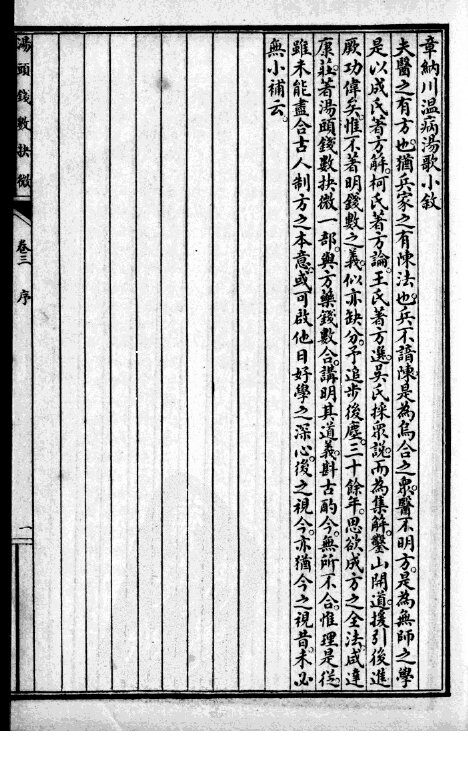 章納川温病湯歌小敘
夫醫之有方也。猶兵家之有陳法也。兵不諳陳。是為烏合之衆。醫不明方。是為無師之學
是以成氏著方解。柯氏著方論。王氏著方選。吳氏採眾說。而為集解。鑿山開道。援引後進
厥功偉矣。惟不著明錢數之義。似亦缺分。予追步後塵。三十餘年。思欲成方之全法。咸達
康莊。著湯頭錢數抉微一部。與方藥錢數合。講明其道義。斟古酌今。無所不合。惟理是從
雖未能盡合古人制方之本意。或可啟他日好學之深心。後之視今。亦猶今之視昔。未必
無小補云。
湯頭錢數抉微
卷三
序
一